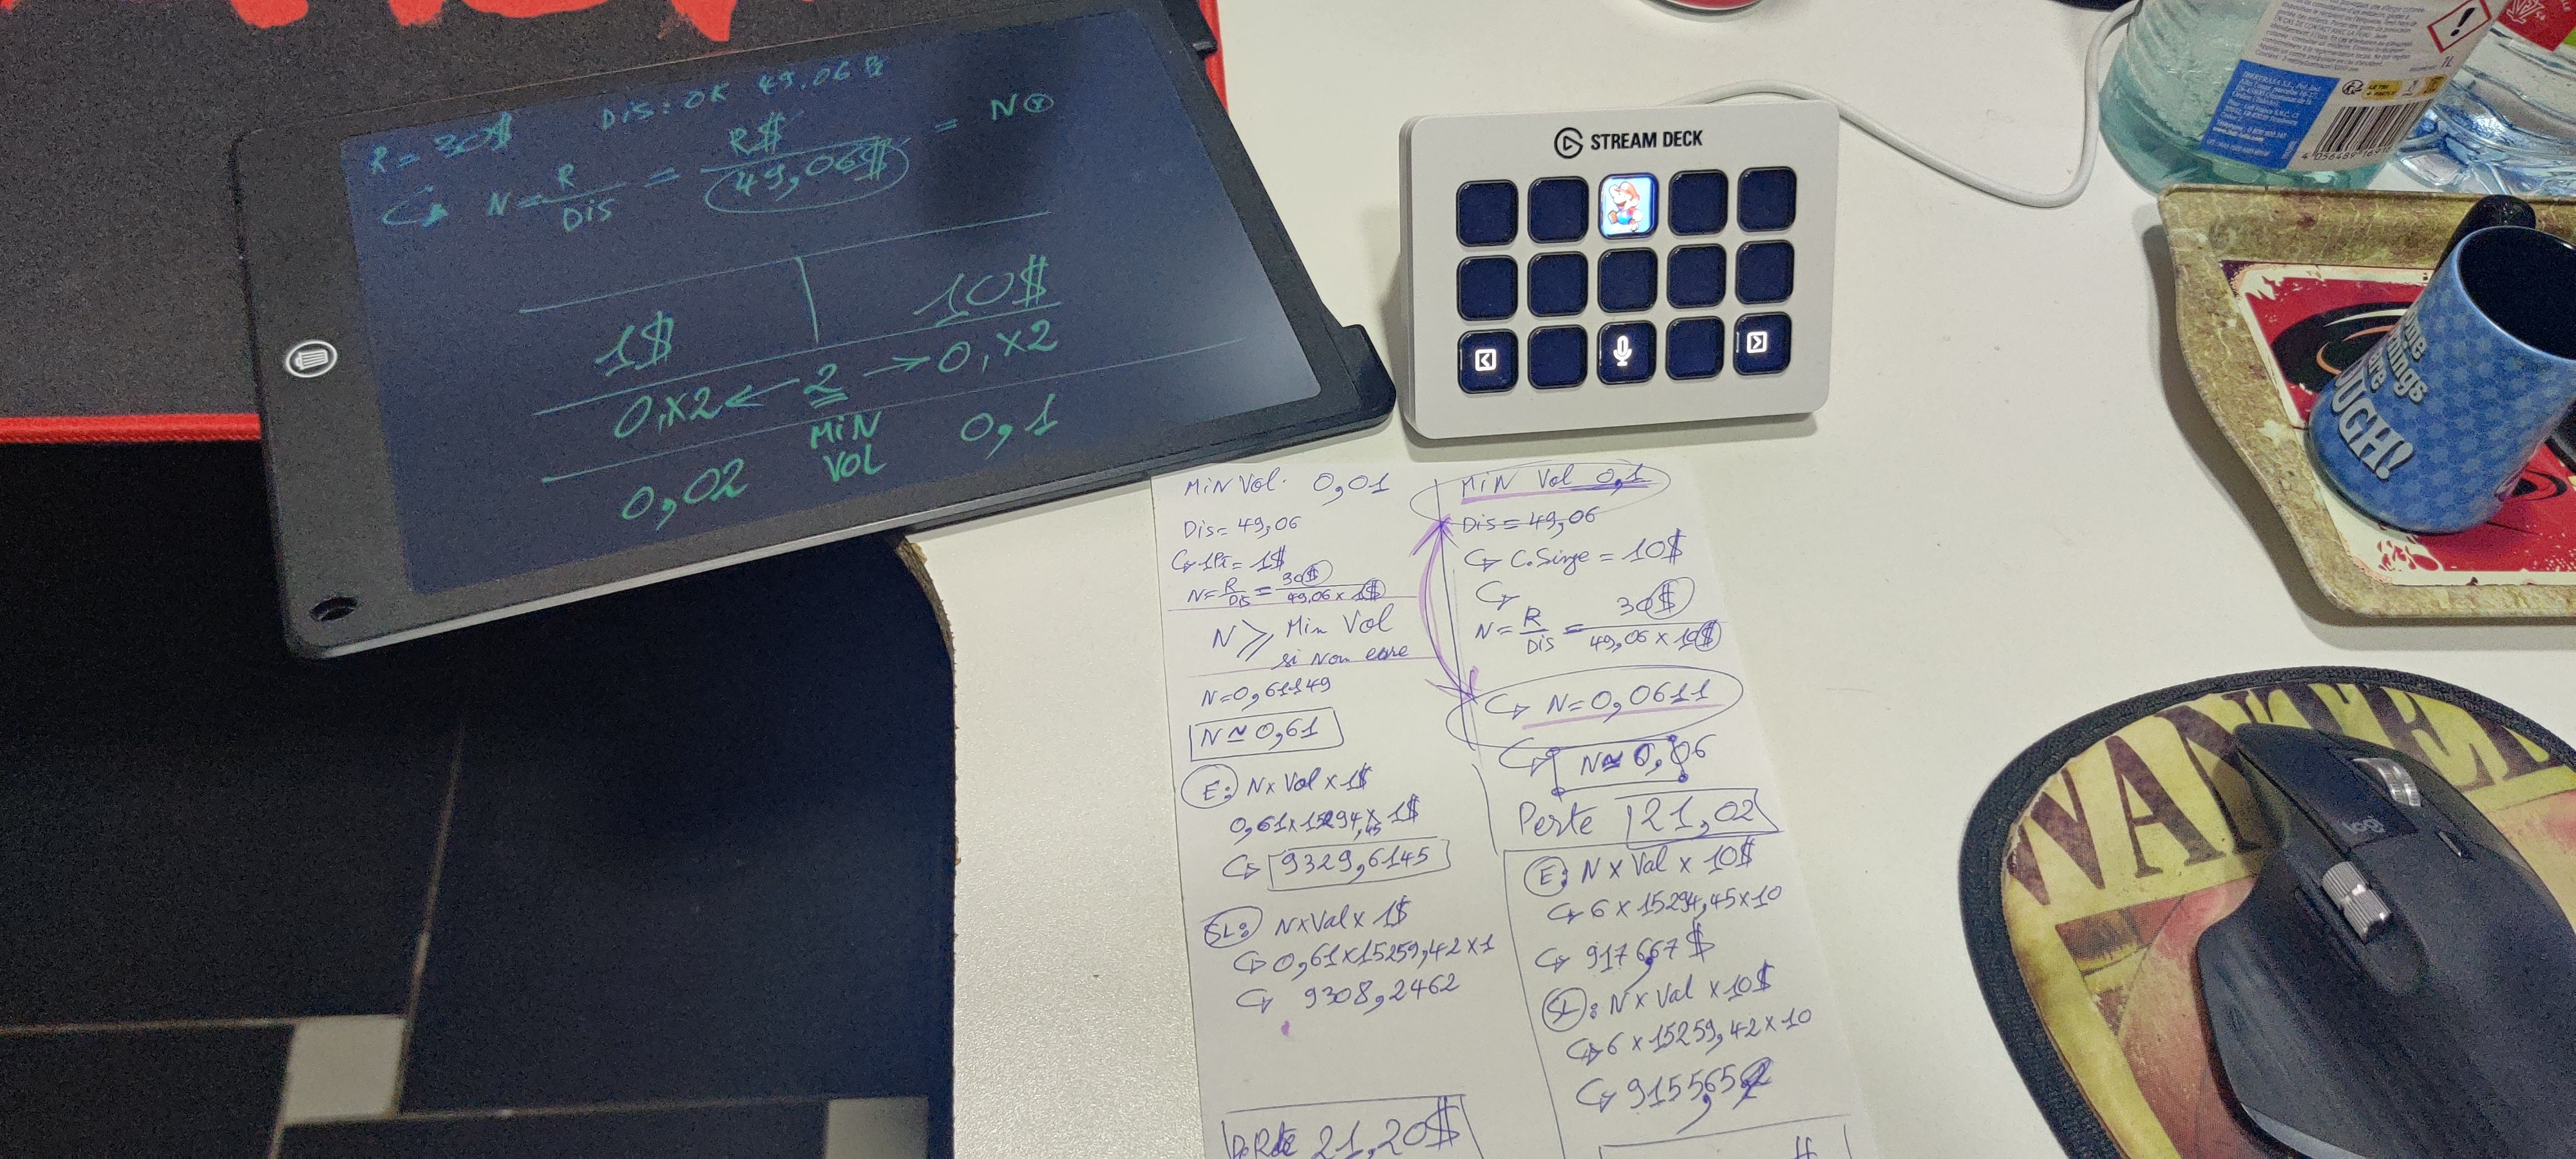 R = 30$ Dis: OK 49,06 Pt
N = R / Dis = R$ / 49,06$ = N
1$ 10$
0,x2 ← 2 → 0,x2
0,02 MiN VOL 0,1
STREAM DECK
MiN Vol. 0,01
Dis = 49,06
1Pt = 1$
N = R / Dis = 30$ / 49,06 x 1$
N ⩾ Min Vol
si Non
N = 0,61149
N ≃ 0,61
E: N x Val x 1$
0,61 x 15294,45 x 1$
9329,6145
SL: N x Val x 1$
0,61 x 15259,42 x 1
9308,2462
Perte 21,20$
MiN Vol 0,1
Dis = 49,06
C.Size = 10$
N = R / Dis = 30$ / 49,06 x 10$
N = 0,0611
N ≃ 0,06
Perte 21,02
E: N x Val x 10$
6 x 15294,45 x 10
9176,67 $
SL: N x Val x 10$
6 x 15259,42 x 10
9155,652
1L
4 056489
OUGH!
WANTED
logi